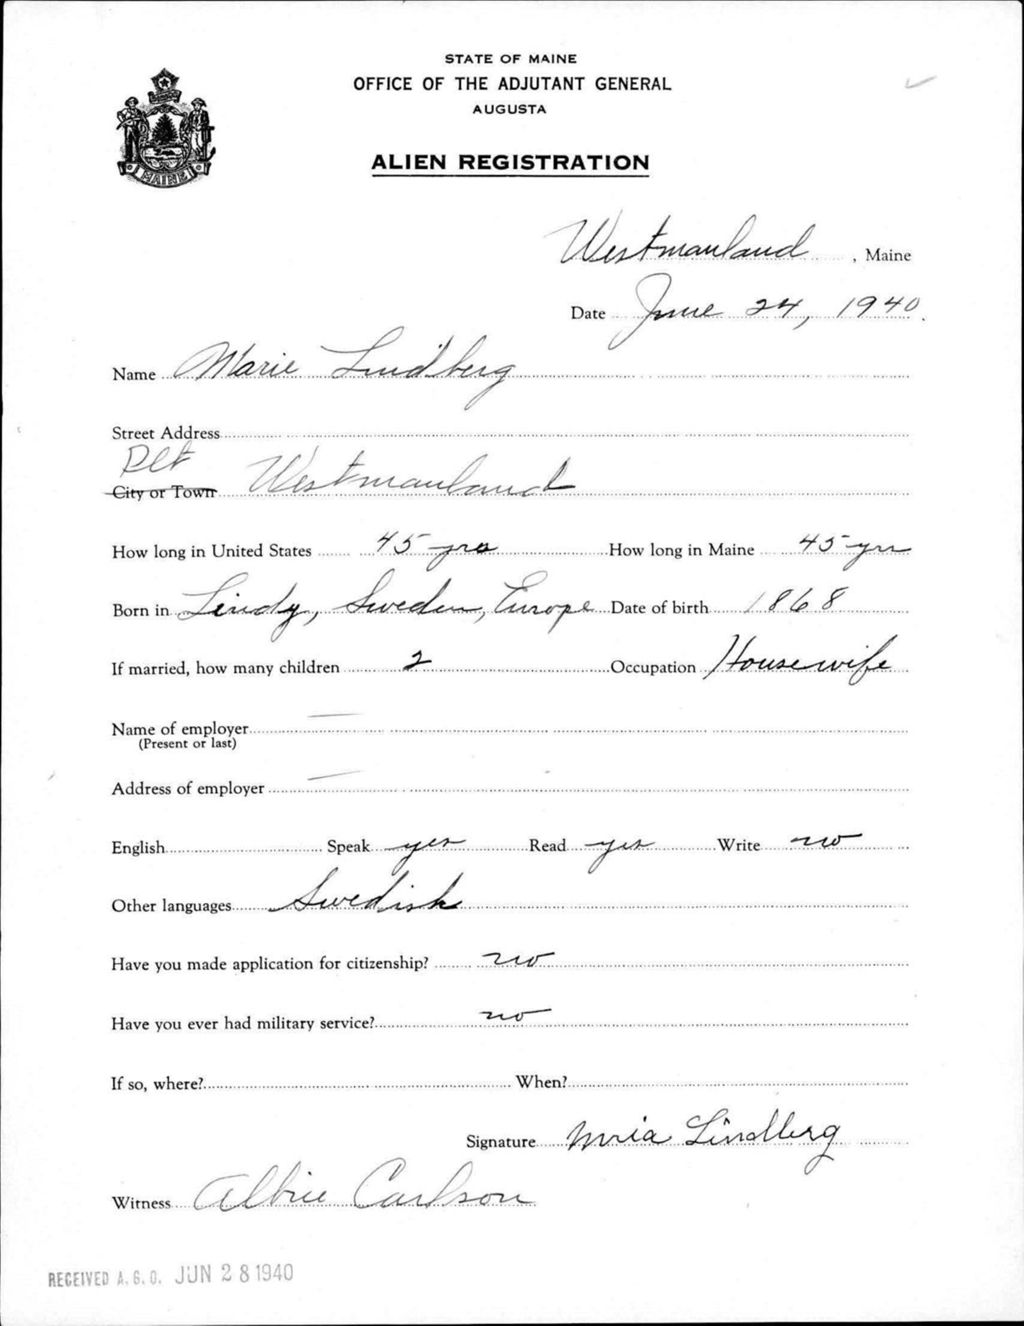 STATE OF MAINE
OFFICE OF THE ADJUTANT GENERAL
AUGUSTA
ALIEN REGISTRATION
MAINE
Westmanland, Maine
Date June 24, 1940
Name Marie Lindberg
Street Address
Plt
City or Town Westmanland
How long in United States 45 yrs How long in Maine 45 yrs
Born in Lindy, Sweden, Europe Date of birth 1868
If married, how many children 2 Occupation Housewife
Name of employer
(Present or last)
Address of employer
English Speak yes Read yes Write no
Other languages Swedish
Have you made application for citizenship? no
Have you ever had military service? no
If so, where? When?
Signature Lindberg
Witness Carlson
RECEIVED A.G.O. JUN 28 1940